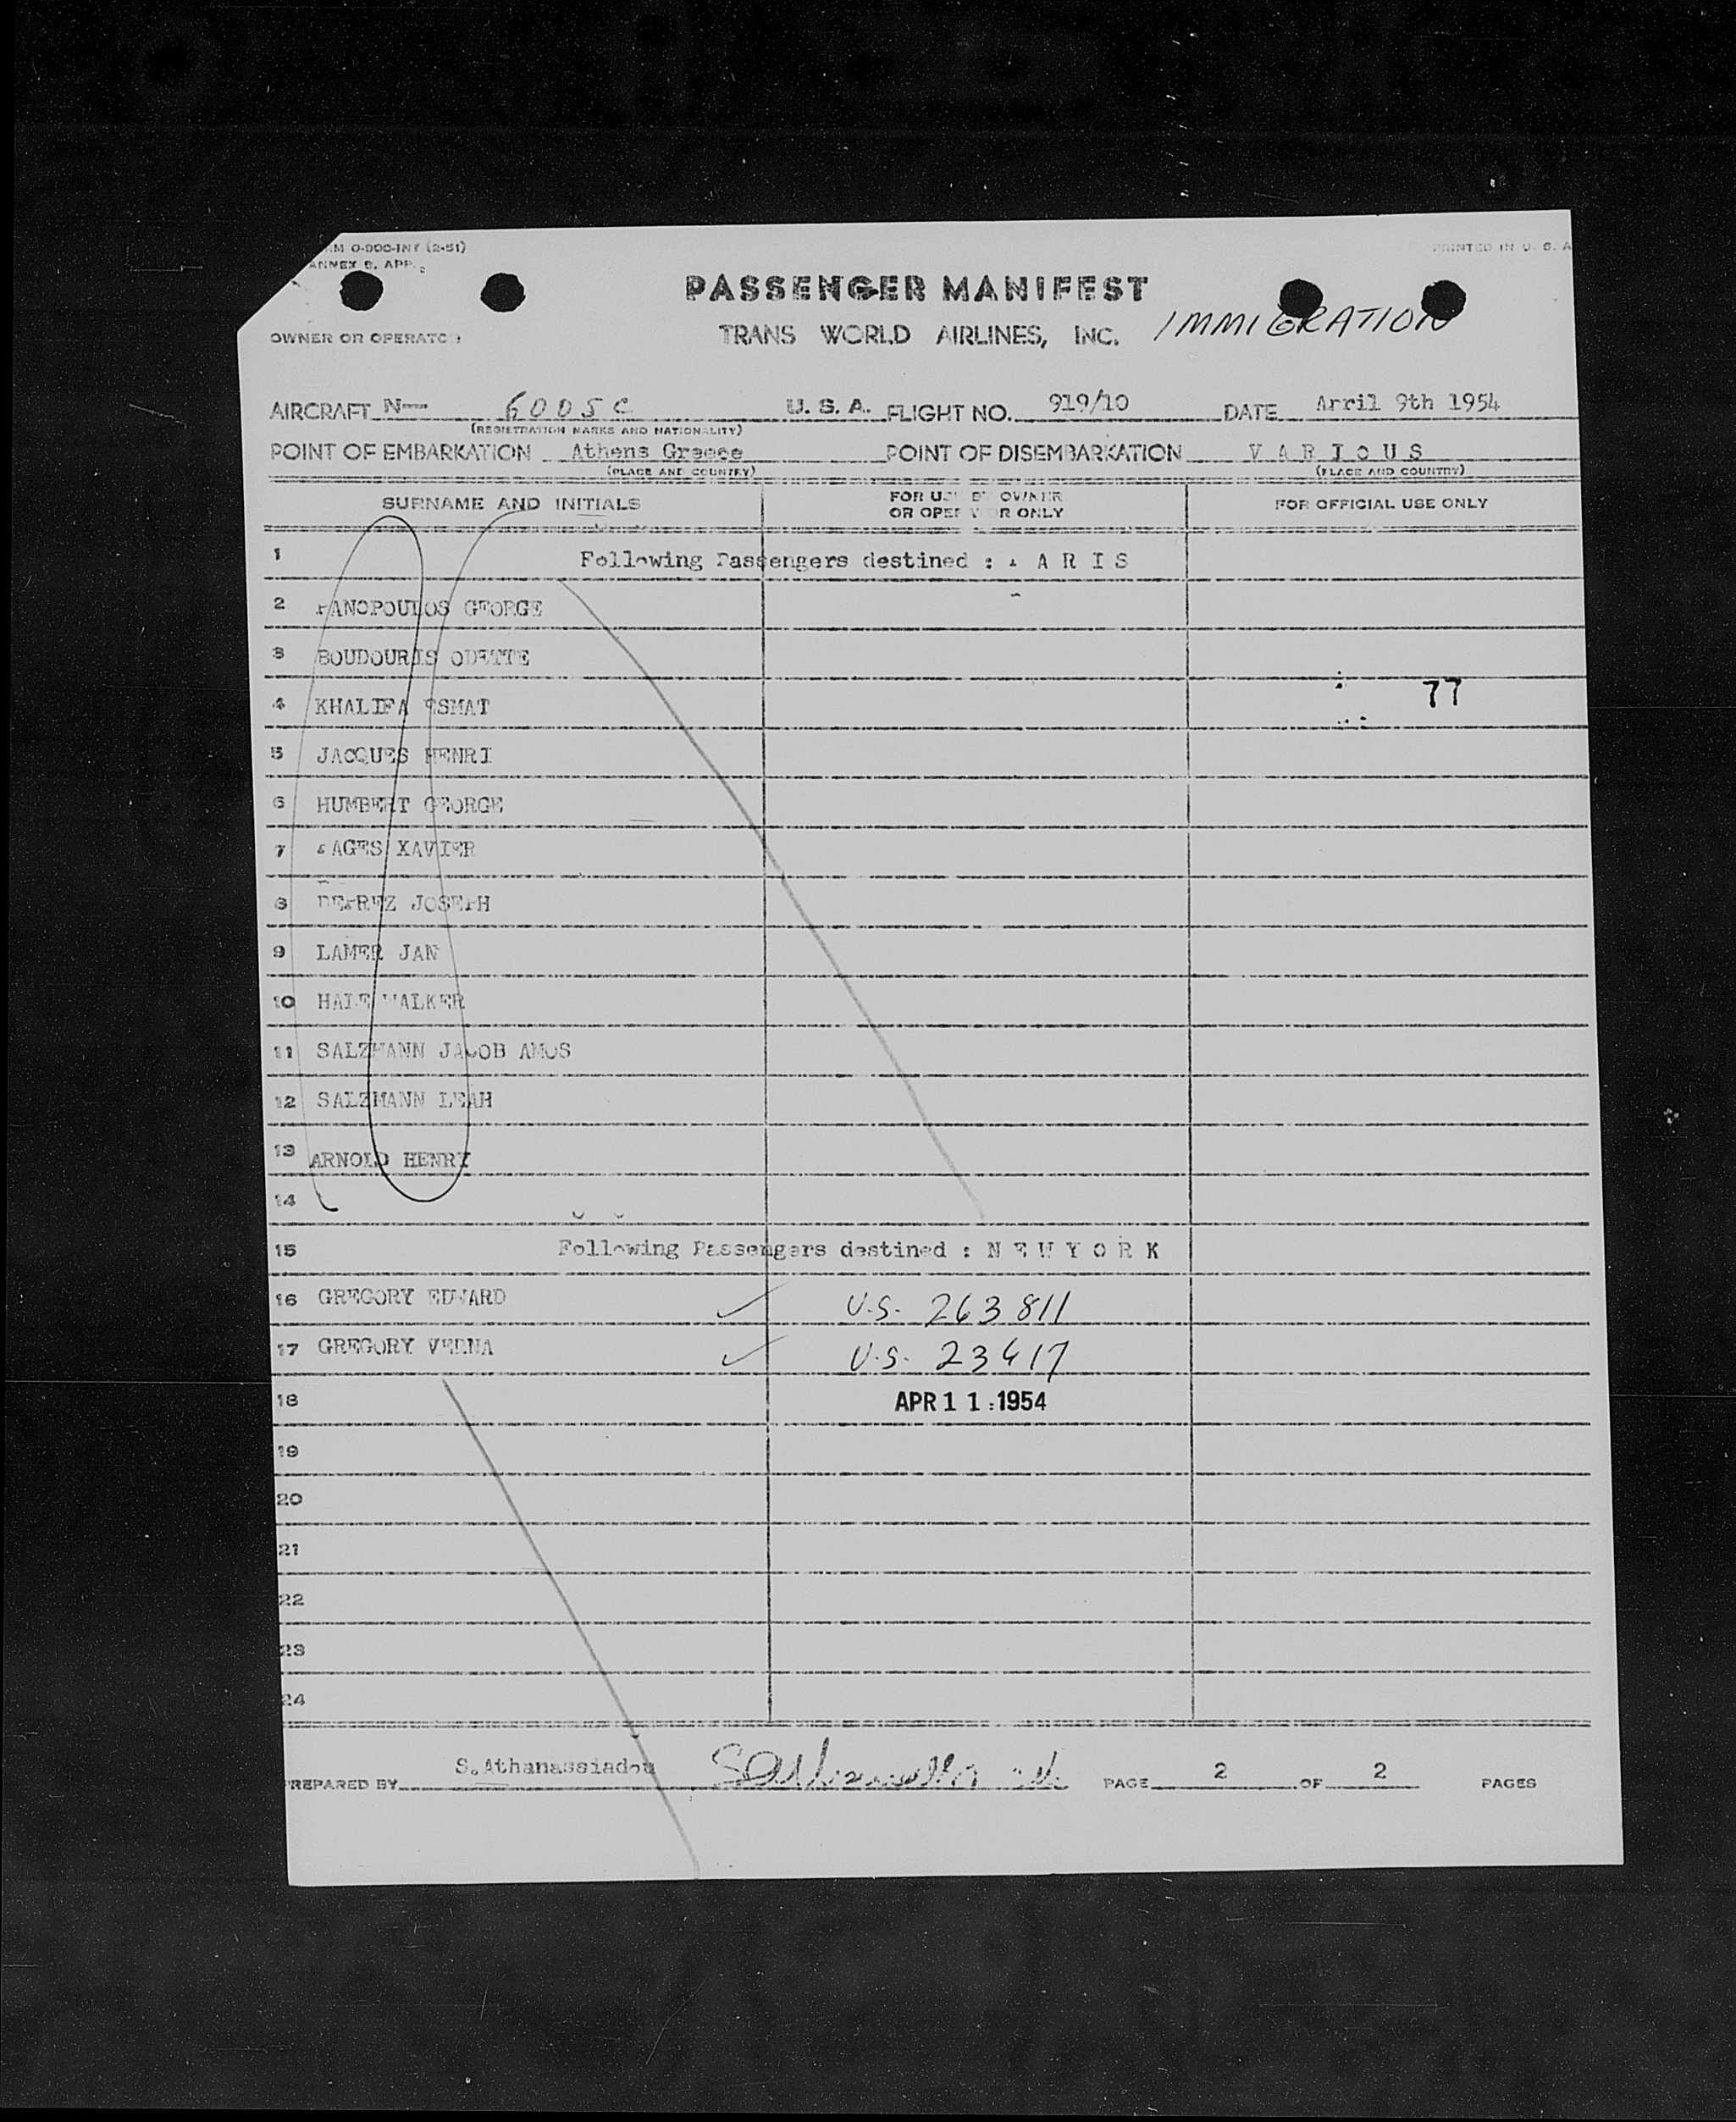 O-900-INT (2-51)
PRINTED IN U. S. A
ANNEX 9, APP.
PASSENGER MANIFEST
OWNER OR OPERATOR
TRANS WORLD AIRLINES, INC. IMMIGRATION
AIRCRAFT N— 6005C U. S. A. FLIGHT NO. 919/10 DATE April 9th 1954
(REGISTRATION MARKS AND NATIONALITY)
POINT OF EMBARKATION Athens Greece POINT OF DISEMBARKATION V A R I O U S
(PLACE AND COUNTRY) (PLACE AND COUNTRY)
SURNAME AND INITIALS FOR USE BY OWNER OR OPERATOR ONLY FOR OFFICIAL USE ONLY
1 Following Passengers destined : P A R I S
2 PANOPOULOS GEORGE
3 BOUDOURIS ODETTE
4 KHALIFA ESMAT 77
5 JACQUES HENRI
6 HUMBERT GEORGE
7 XAVIER
8 DEPREZ JOSEPH
9 LAMER JAN
10 HALE WALKER
11 SALZMANN JACOB AMOS
12 SALZMANN LEAH
13 ARNOLD HENRY
14
15 Following Passengers destined : N E W Y O R K
16 GREGORY EDWARD U.S. 263811
17 GREGORY VERNA U.S. 23417
18 APR 11 1954
19
20
21
22
23
24
PREPARED BY S.Athanassiadou PAGE 2 OF 2 PAGES